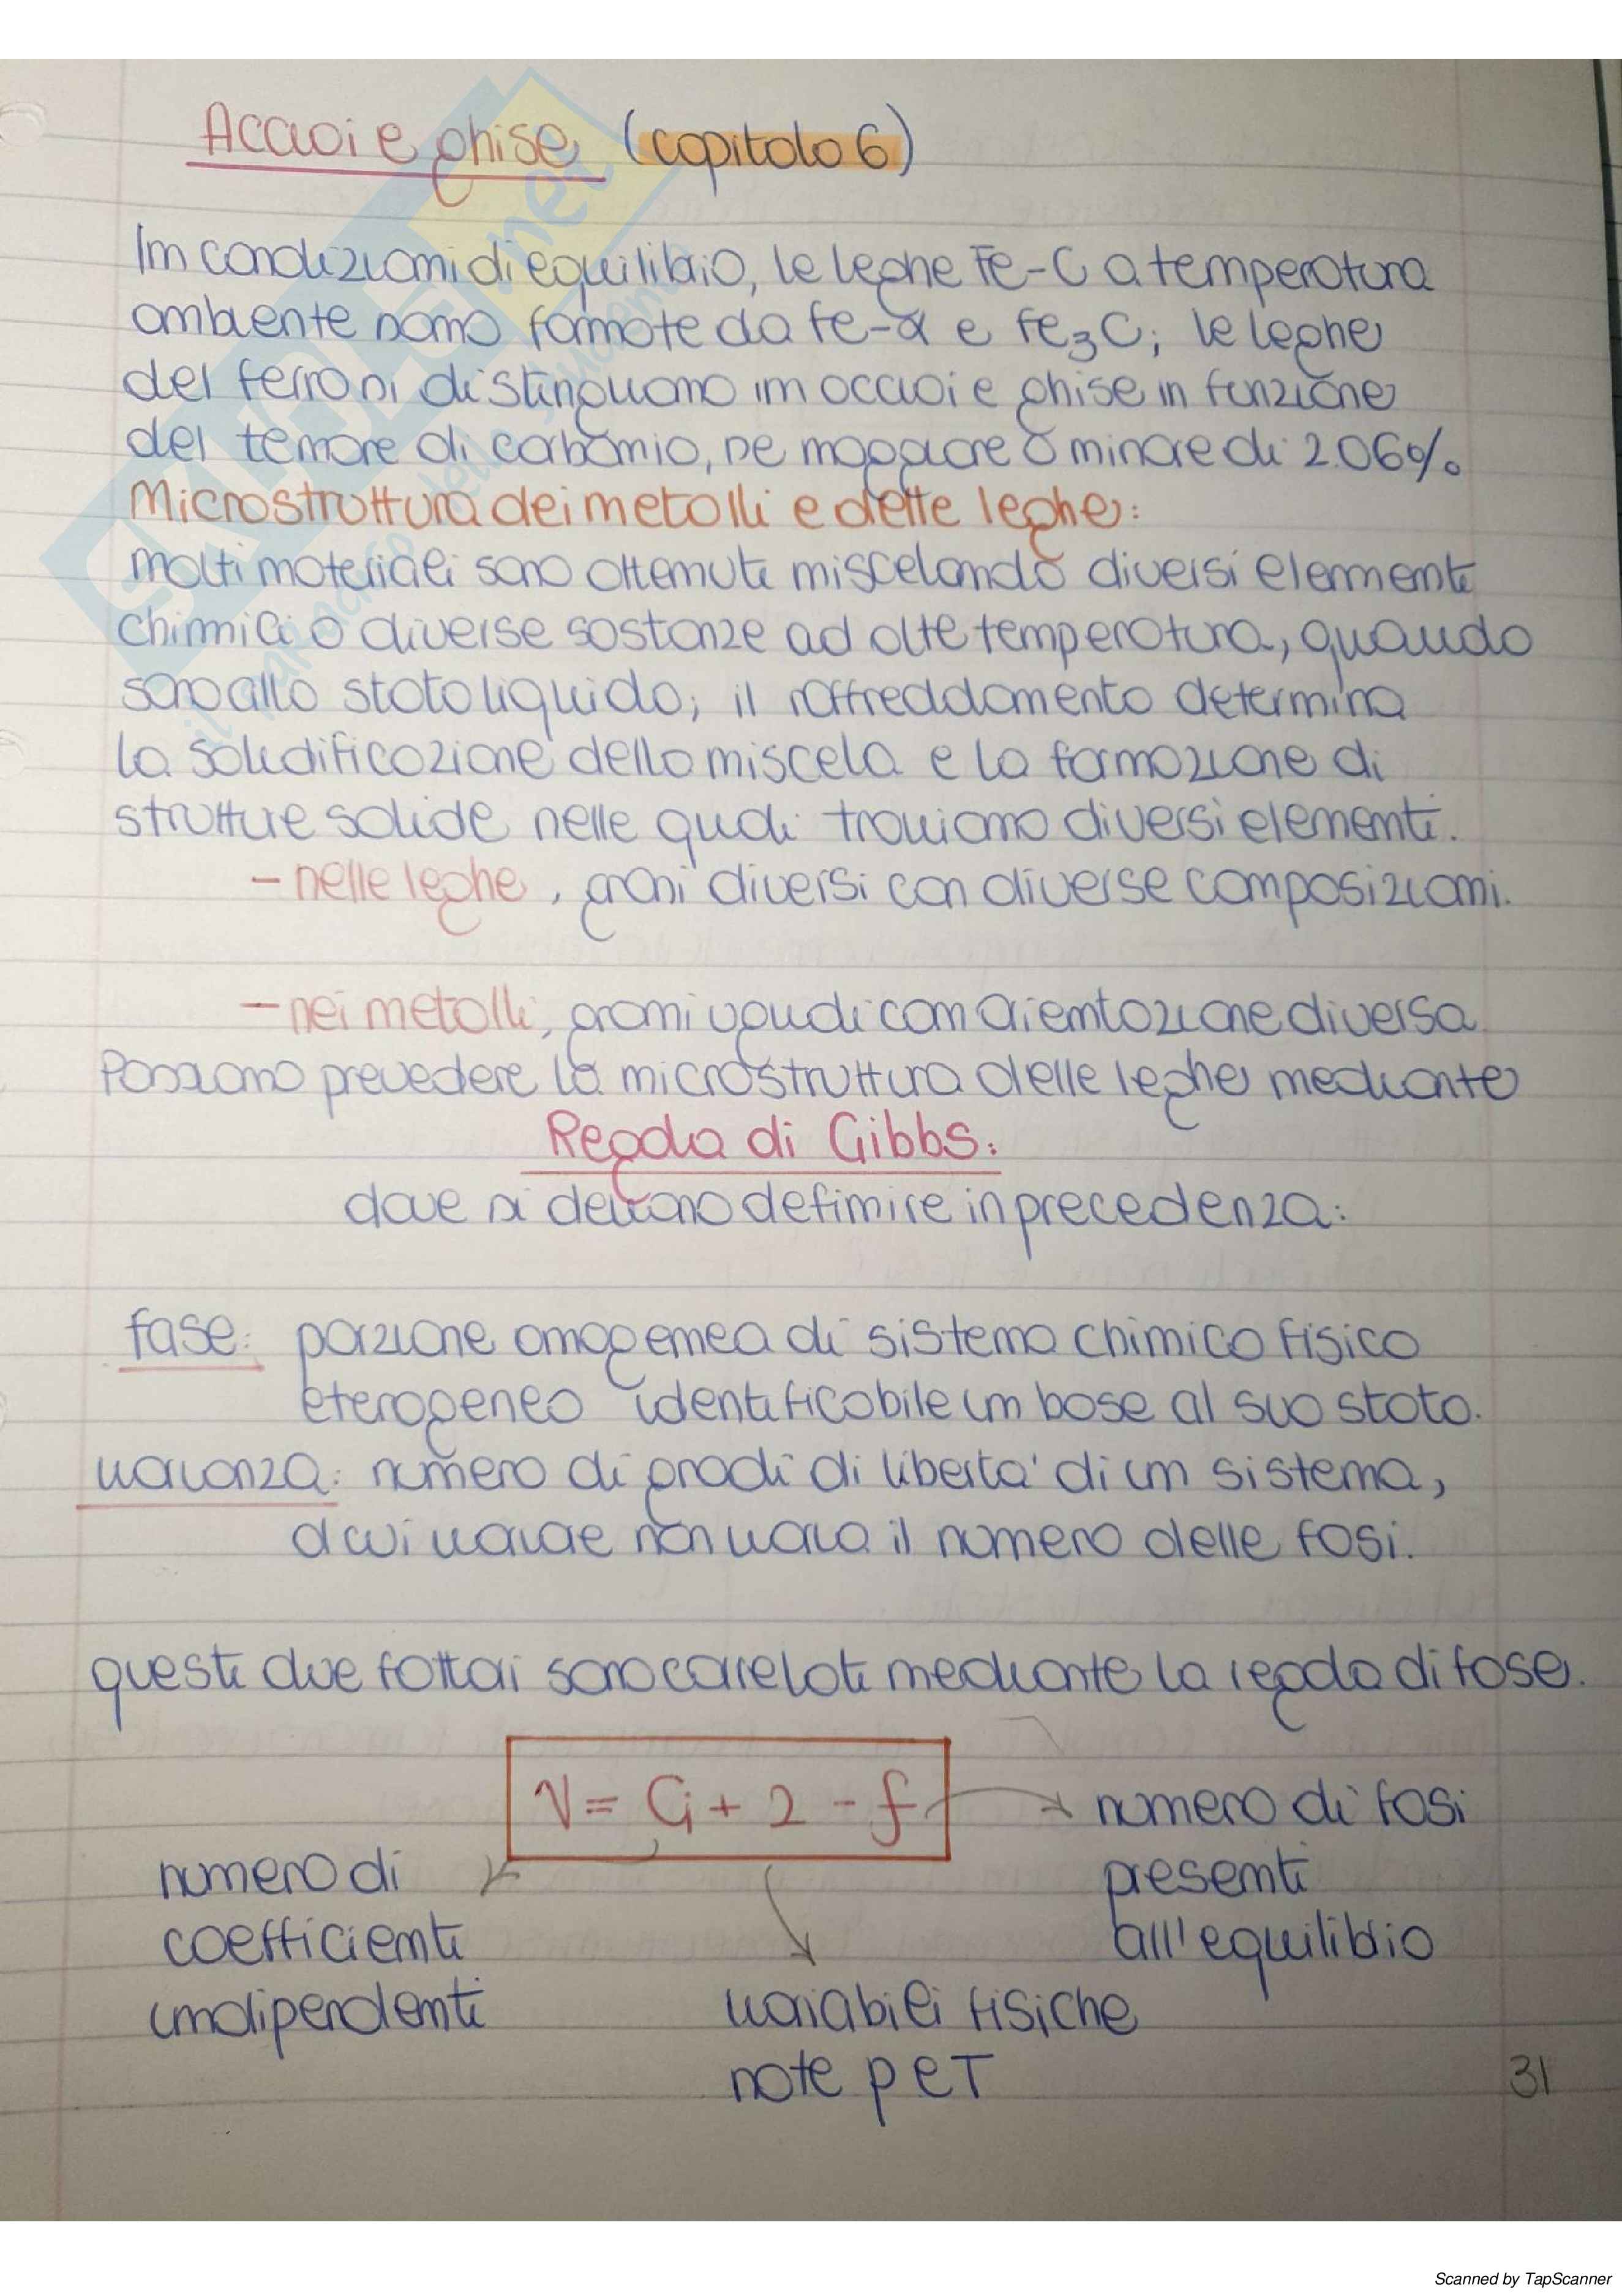 Acciai e ghise (capitolo 6)
In condizioni di equilibrio, le leghe Fe-C a temperatura
ambiente sono formate da Fe-α e Fe₃C; le leghe
del ferro si distinguono in acciai e ghise in funzione
del tenore di carbonio, se maggiore o minore di 2.06%.
Microstruttura dei metalli e delle leghe:
molti materiali sono ottenuti miscelando diversi elementi
chimici o diverse sostanze ad alte temperatura, quando
sono allo stato liquido; il raffreddamento determina
la solidificazione della miscela e la formazione di
strutture solide nelle quali troviamo diversi elementi.
- nelle leghe, grani diversi con diverse composizioni.
- nei metalli, grani uguali con orientazione diversa.
Possiamo prevedere la microstruttura delle leghe mediante
Regola di Gibbs:
dove si devono definire in precedenza:
fase: porzione omogenea di sistema chimico fisico
eterogeneo identificabile in base al suo stato.
varianza: numero di gradi di libertà di un sistema,
al cui variare non varia il numero delle fasi.
questi due fattori sono correlati mediante la regola di fase.
V = Ci + 2 - f
numero di fasi
presenti
all'equilibrio
numero di
coefficienti
indipendenti
variabili fisiche
note p e T
31
Scanned by TapScanner